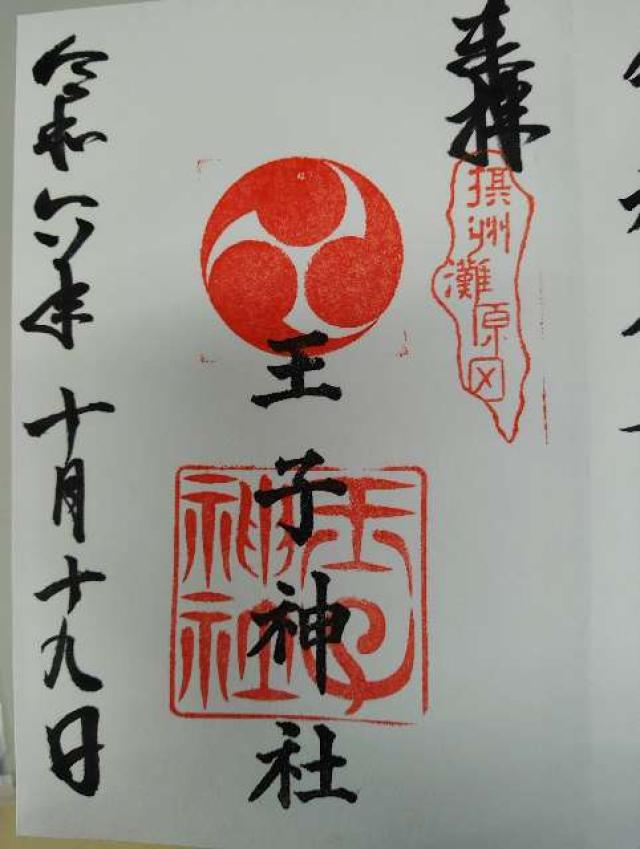 奉拝
摂州灘原田
王子神社
王子
神社
令和六年十月十九日